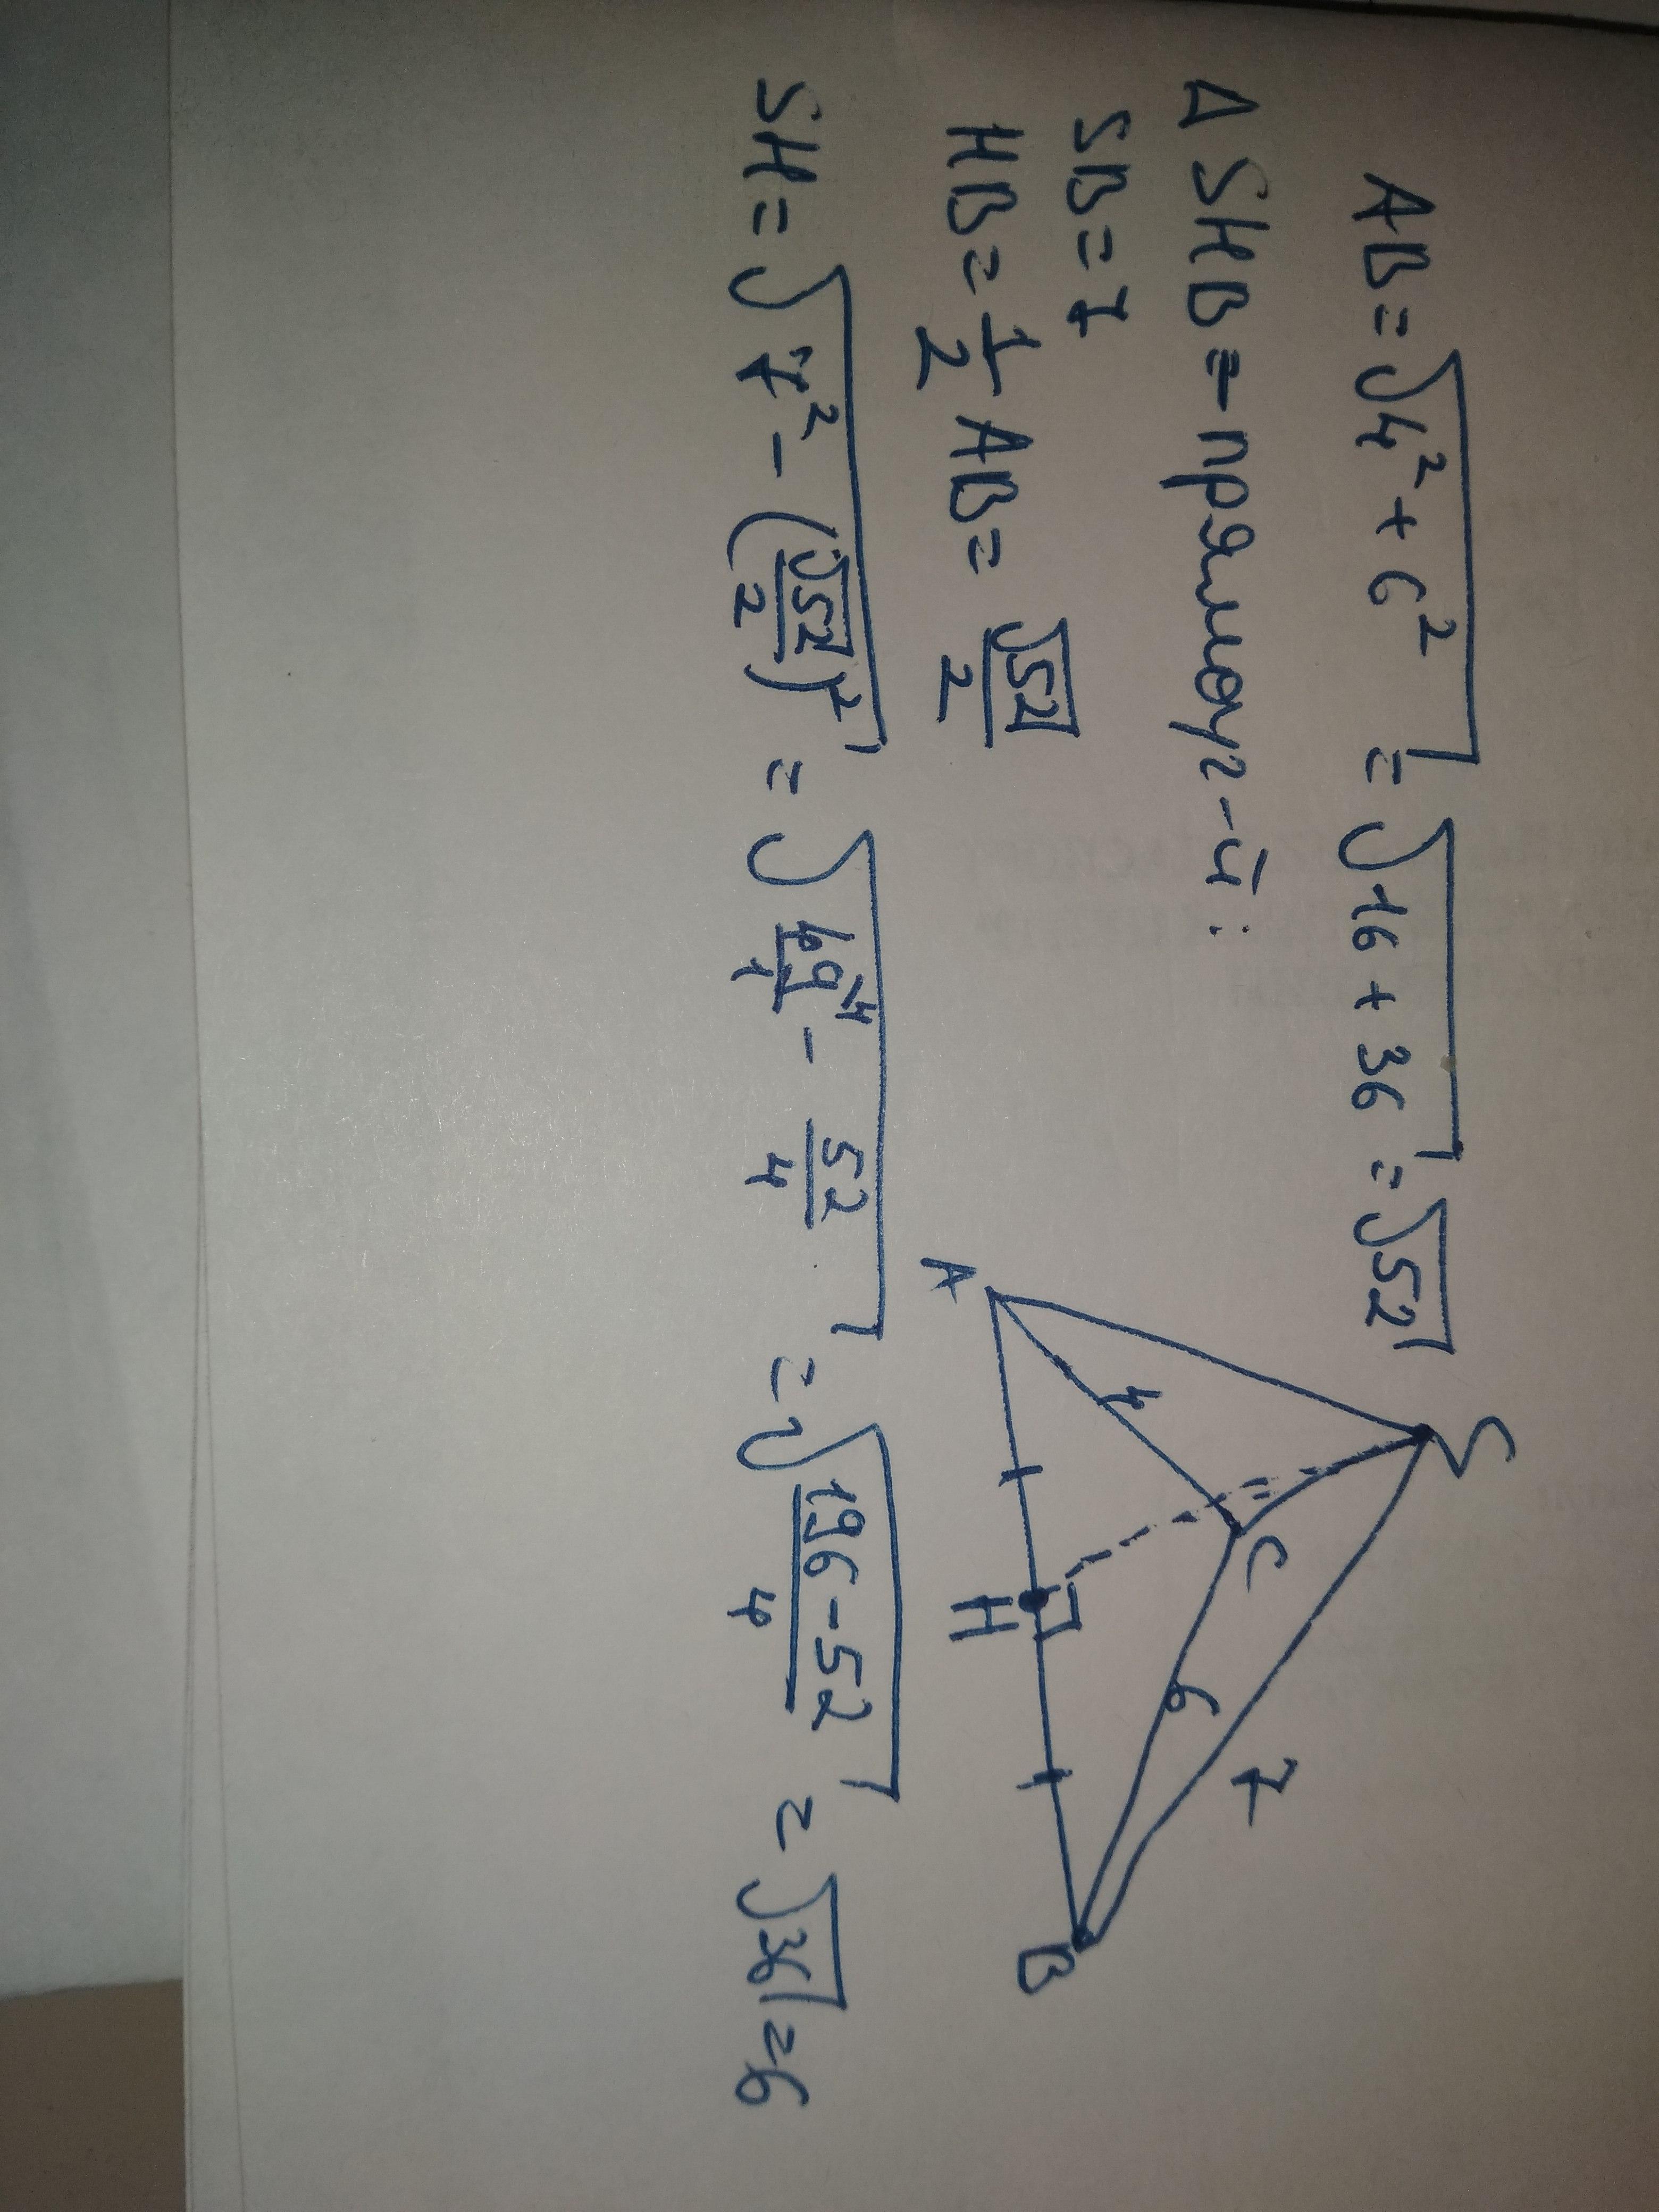 AB = √(4² + 6²) = √(16 + 36) = √52
Δ SHB – прямоуг-й:
SB = 7
HB = 1/2 AB = √52/2
SH = √(7² - (√52/2)²) = √(49/1 ⁴ - 52/4) = √((196 - 52)/4) = √36 = 6
S
A
4
C
6
7
H
B